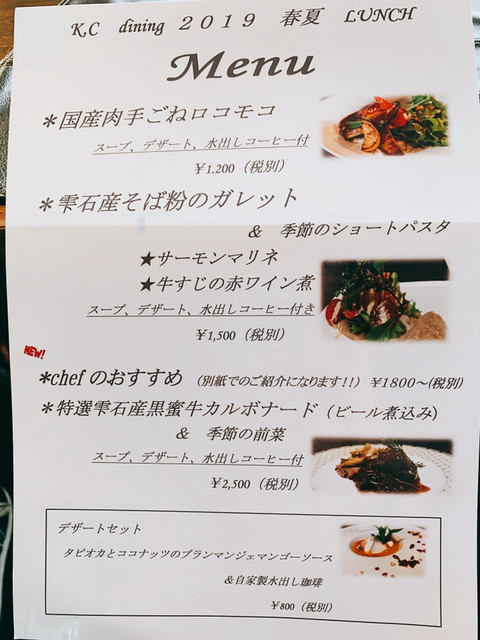 K,C dining 2019 春夏 LUNCH
Menu
＊国産肉手ごねロコモコ
スープ、デザート、水出しコーヒー付
￥1.200（税別）
＊雫石産そば粉のガレット
& 季節のショートパスタ
★サーモンマリネ
★牛すじの赤ワイン煮
スープ、デザート、水出しコーヒー付き
￥1,500（税別）
NEW!
＊chef のおすすめ （別紙でのご紹介になります！！） ￥1800～(税別)
＊特選雫石産黒蜜牛カルボナード（ビール煮込み）
& 季節の前菜
スープ、デザート、水出しコーヒー付
￥2,500（税別）
デザートセット
タピオカとココナッツのブランマンジェマンゴーソース
＆自家製水出し珈琲
￥800（税別）